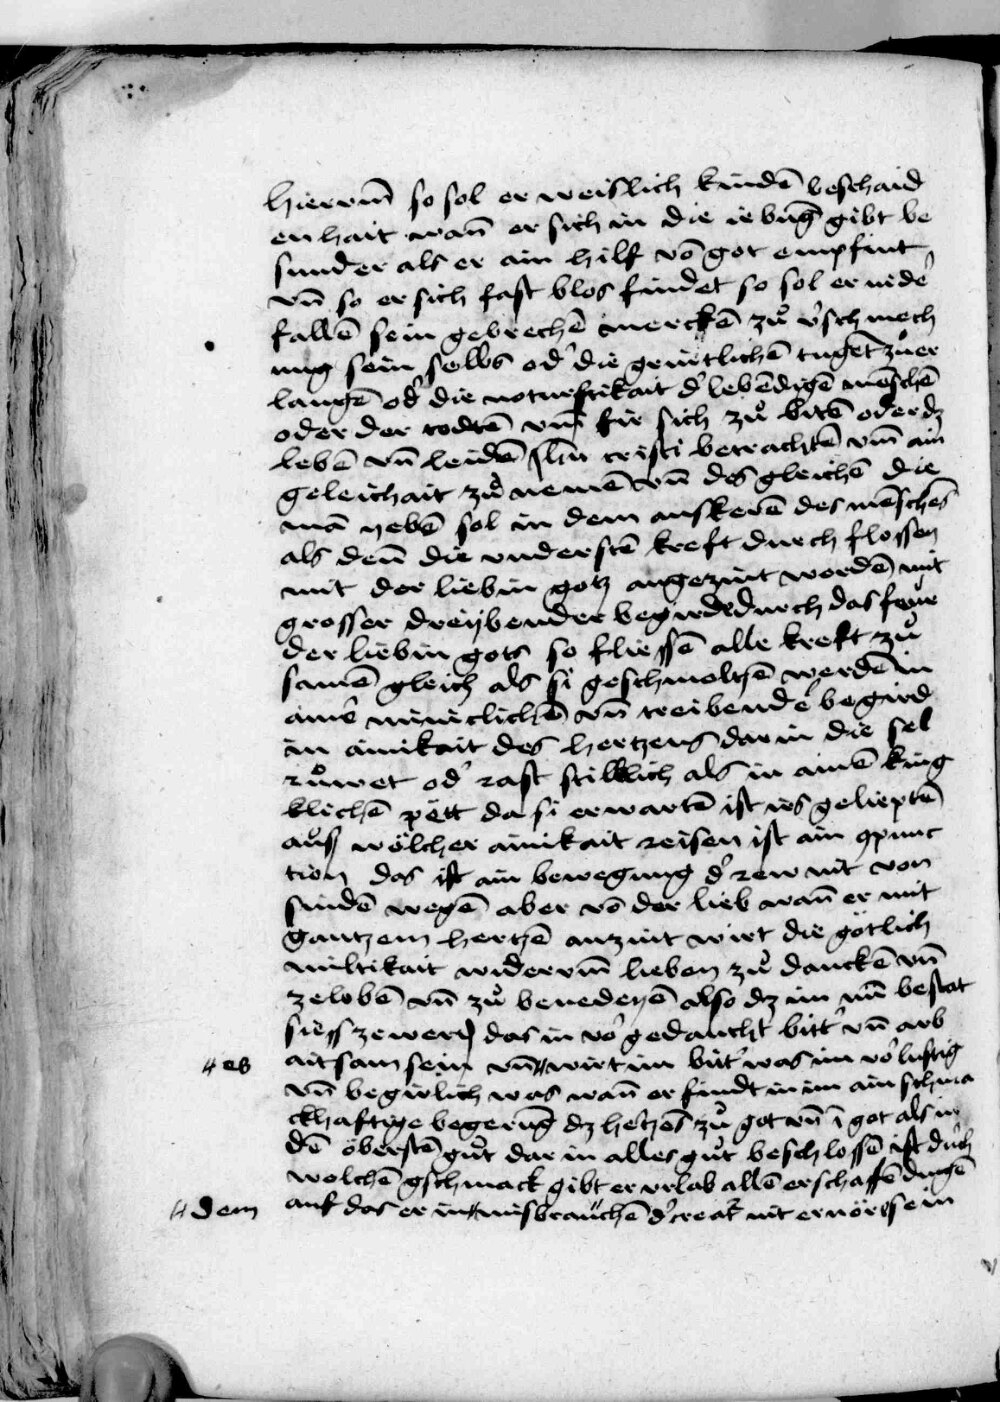 hierum̄ so sol er weislich kindē beschaid
enhait wan̄ er sich in die iebūg gibt be
sunder als er ain hilf vō got empfint
vn̄ so er sich fast blos findet so sol er nide᷑
fallē sein gebrechē merckē zů v᷑schmech
ung sein selbs od᷑ die götlichē tugēt zůer
langē od᷑ die noturftikait d᷑ lebēdigē mēschē
oder der todtē vm̄ fir sich zů bitē oder dz
lebē vn̄ leidē cristi betrachtē vm̄ ain
geleichait zů nemē vn̄ des gleichē die
mā yebē sol in dem auskerē des mēsches
als den̄ die vnderstē kreft durch flossen
mit der liebin gotz angezint wordē mit
grosser dreybender begird durch das feür
der liebin gots so fliessē alle kreft zů
samē gleich als si geschmoltzē werdē in
aine᷑ miniclichē vn̄ treibende᷑ begird
in ainikait des hertzens dar in die sel
růwet od᷑ rast stilklich als in ainē king
klichē pett da si erwartē ist irs gelieptē
aus wölcher ainikait reisen ist ain ꝯpunc
tion das ist ain bewegung d᷑ rew nit von
sindē wegē aber vō der lieb wan̄ er mit
gantzem hertzē anzint wirt die götlich
miltikait widerum̄ lieben zů danckē vn̄
zelobē vn̄ zů benedeyē also dz im nu᷑ bestat
siess zewerdē das im vo᷑ gedaucht bitt᷑ vn̄ arb
aitsam sein vn̄ wirt im bitt᷑ was im vo᷑ lustig
# es
vn̄ begirlich was wan̄ er findt in im ain schma
ckhaftige begerūg dz he᷑tzēs zů got vn̄ ī got als in
dē öberstē gůt dar in alles gůt beschlossē ist durch
wolchē gschmack gibt er vrlab allē erschaffē dingē
auf das er in misbrauchē d᷑ creat᷑ nit ernörs sein
# dem